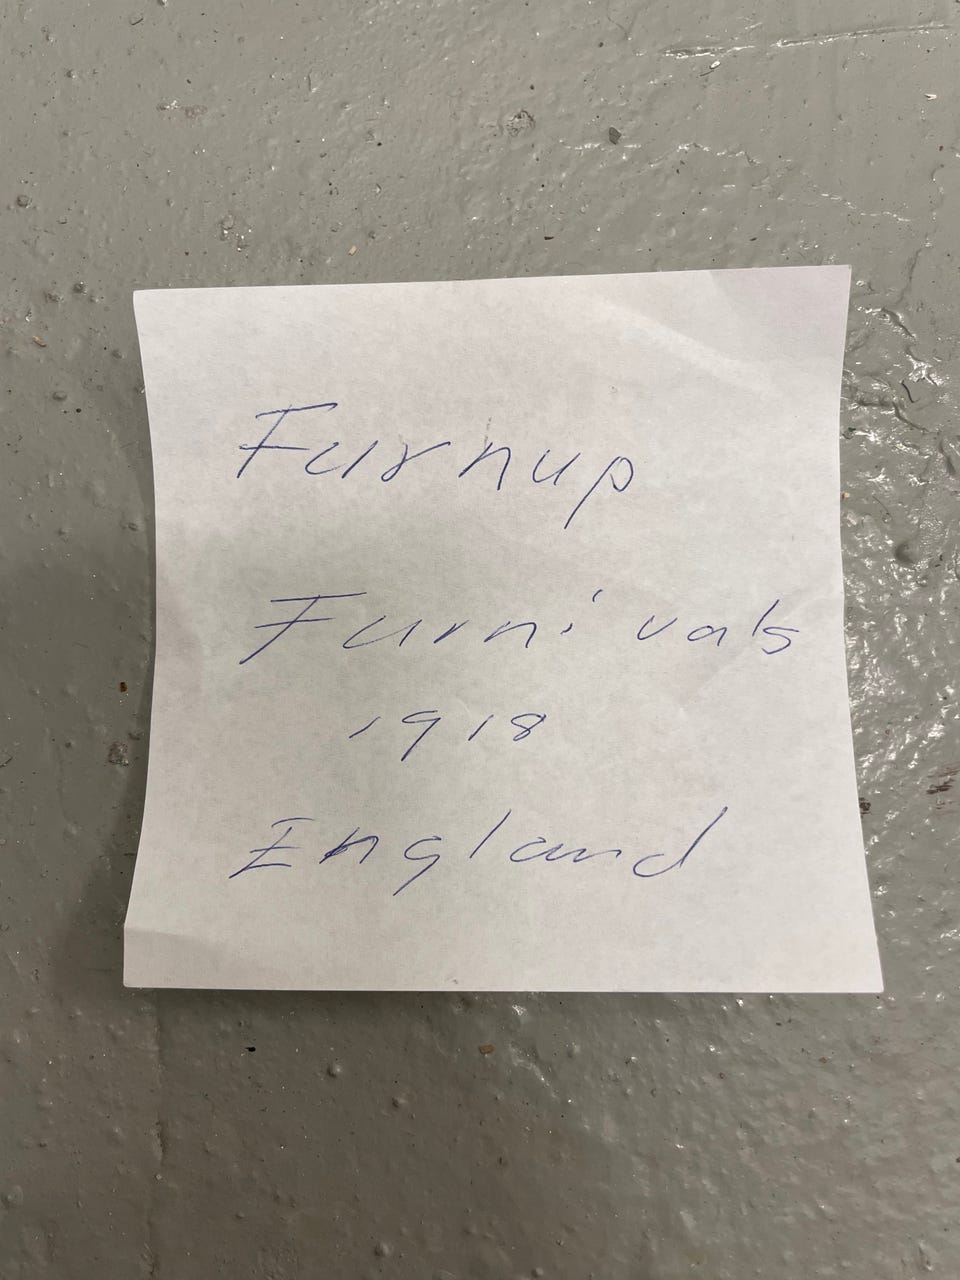 Furnup
Furnivals
1918
England